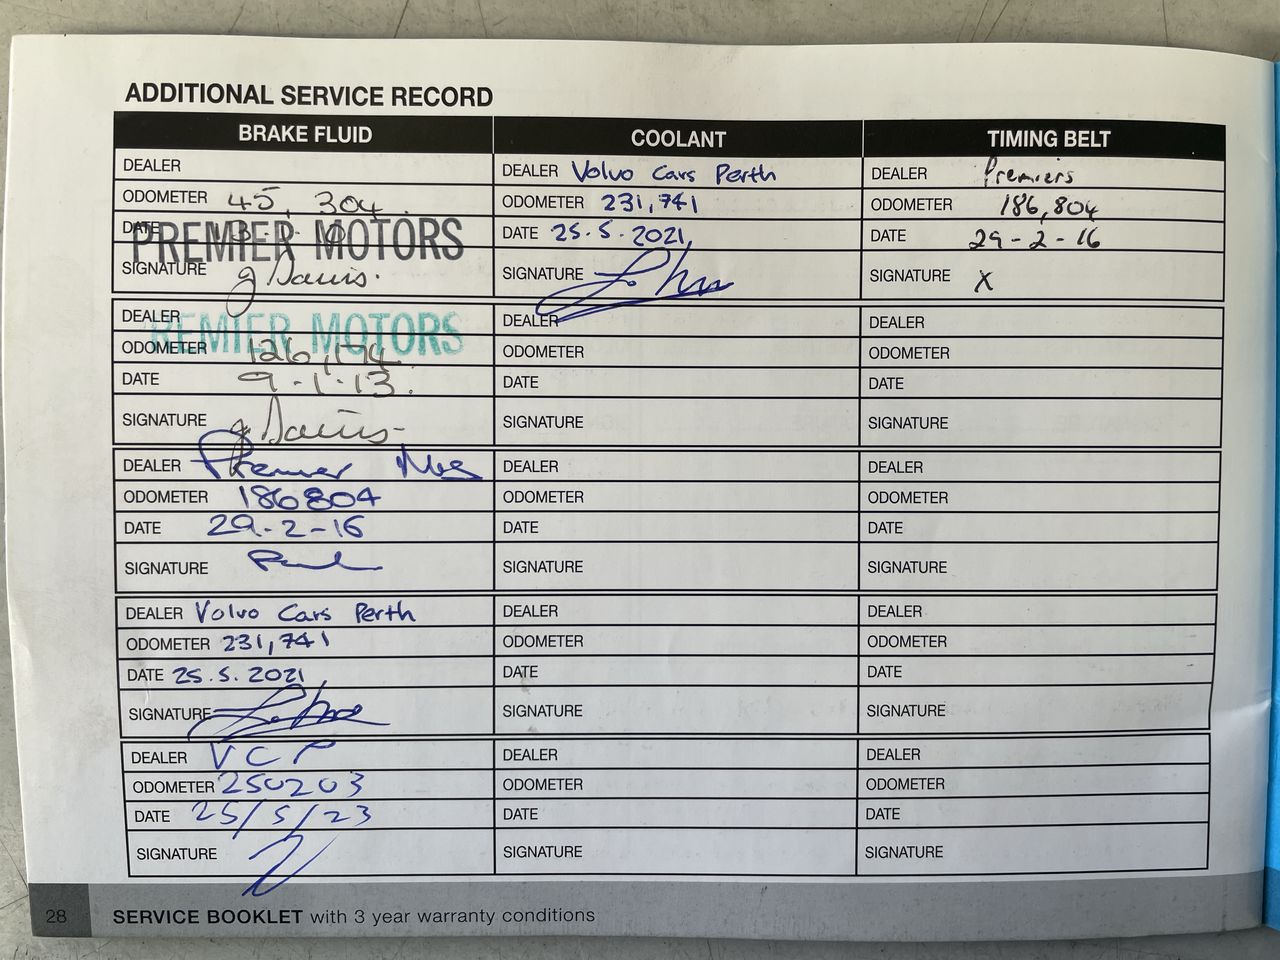 ADDITIONAL SERVICE RECORD
BRAKE FLUID
DEALER
ODOMETER 45, 304
DATE
PREMIER MOTORS
SIGNATURE g Davis.
DEALER
REMIER MOTORS
ODOMETER 126,174
DATE 9.1.13.
SIGNATURE g Davis
DEALER Premier
ODOMETER 186804
DATE 29-2-16
SIGNATURE
DEALER Volvo Cars Perth
ODOMETER 231,741
DATE 25.5.2021
SIGNATURE
DEALER VCP
ODOMETER 250203
DATE 25/5/23
SIGNATURE
COOLANT
DEALER Volvo Cars Perth
ODOMETER 231,741
DATE 25.5.2021
SIGNATURE
DEALER
ODOMETER
DATE
SIGNATURE
DEALER
ODOMETER
DATE
SIGNATURE
DEALER
ODOMETER
DATE
SIGNATURE
DEALER
ODOMETER
DATE
SIGNATURE
TIMING BELT
DEALER Premiers
ODOMETER 186,804
DATE 29-2-16
SIGNATURE X
DEALER
ODOMETER
DATE
SIGNATURE
DEALER
ODOMETER
DATE
SIGNATURE
DEALER
ODOMETER
DATE
SIGNATURE
DEALER
ODOMETER
DATE
SIGNATURE
28 SERVICE BOOKLET with 3 year warranty conditions